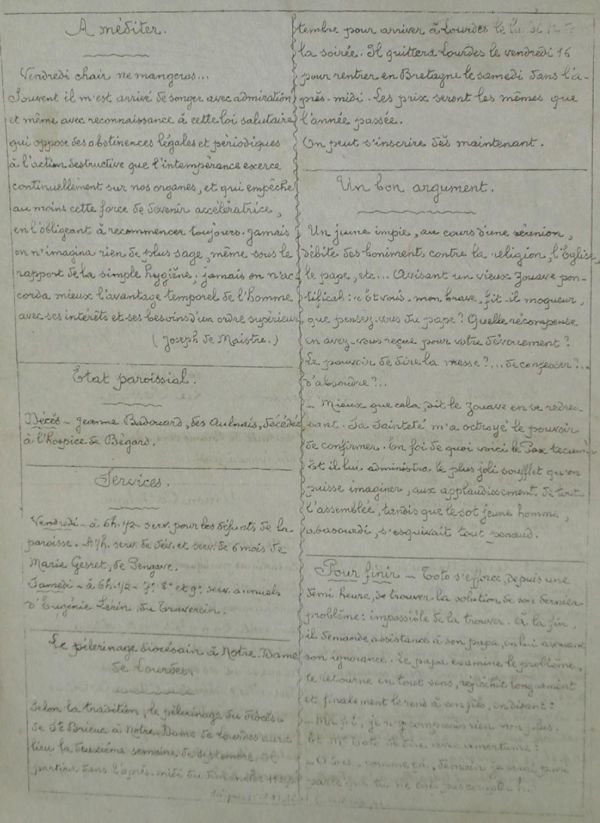 A méditer.
Vendredi chair ne mangeras...
Souvent il m'est arrivé de songer avec admiration
et même avec reconnaissance à cette loi salutaire
qui oppose des abstinences légales et périodiques
à l'action destructive que l'intempérance exerce
continuellement sur nos organes, et qui empêche
au moins cette force de devenir accélératrice,
en l'obligeant à recommencer toujours. Jamais
on n'imagina rien de plus sage, même sous le
rapport de la simple hygiène; jamais on n'ac
corda mieux l'avantage temporel de l'homme
avec ses intérêts et ses besoins d'un ordre supérieur
(Joseph de Maistre.)
Etat paroissial.
Décès - Jeanne Badouard, des Aulnais, décédée
à l'hospice de Bégard.
Services.
Vendredi - à 6h 1/2 serv. pour les défunts de la
paroisse. - A 7h. serv. de dév. et serv. de 6 mois de
Marie Gesret, de
Samedi - à 6h 1/2 - 7e 8e et 9e serv. annuels
d'Eugénie du
Le pèlerinage diocésain à Notre Dame
de Lourdes.
Selon la tradition, le pèlerinage du diocèse
de St Brieuc à Notre Dame de Lourdes aura
lieu la deuxième semaine de septembre. Il
partira dans l'après midi du
tembre pour arriver à Lourdes le
la soirée. Il quittera Lourdes le vendredi 16
pour rentrer en Bretagne le samedi dans l'a-
près-midi. Les prix seront les mêmes que
l'année passée.
On peut s'inscrire dès maintenant.
Un bon argument.
Un jeune impie, au cours d'une réunion,
débite des boniments contre la religion, l'Eglise,
le pape, etc... Avisant un vieux zouave pon-
tifical: "Et vous, mon brave, fit-il moqueur,
que pensez-vous du pape? Quelle récompense
en avez-vous reçue pour votre dévouement?
Le pouvoir de dire la messe?... de confesser?...
d'absoudre?..
- Mieux que cela, dit le zouave en se redres
sant. Sa Sainteté m'a octroyé le pouvoir
de confirmer. En foi de quoi voici le Pax tecum"
Et il lui administra le plus joli soufflet qu'on
puisse imaginer, aux applaudissement de toute
l'assemblée, tandis que le sot jeune homme,
abasourdi, s'esquivait tout penaud.
Pour finir - Toto s'efforce, depuis une
demi heure, de trouver la solution de son dernier
problème: impossible de la trouver. A la fin,
il demande assistance à son papa, en lui avouant
son ignorance. Le papa examine le problème,
le retourne en tout sens, réfléchit longuement
et finalement le rend à son fils, en disant:
- Ma foi, je n'y comprends rien non plus.
Et Mr Toto de dire avec amertume:
- O tout comme ça, demain je serai puni
parce que tu ne sais pas compter